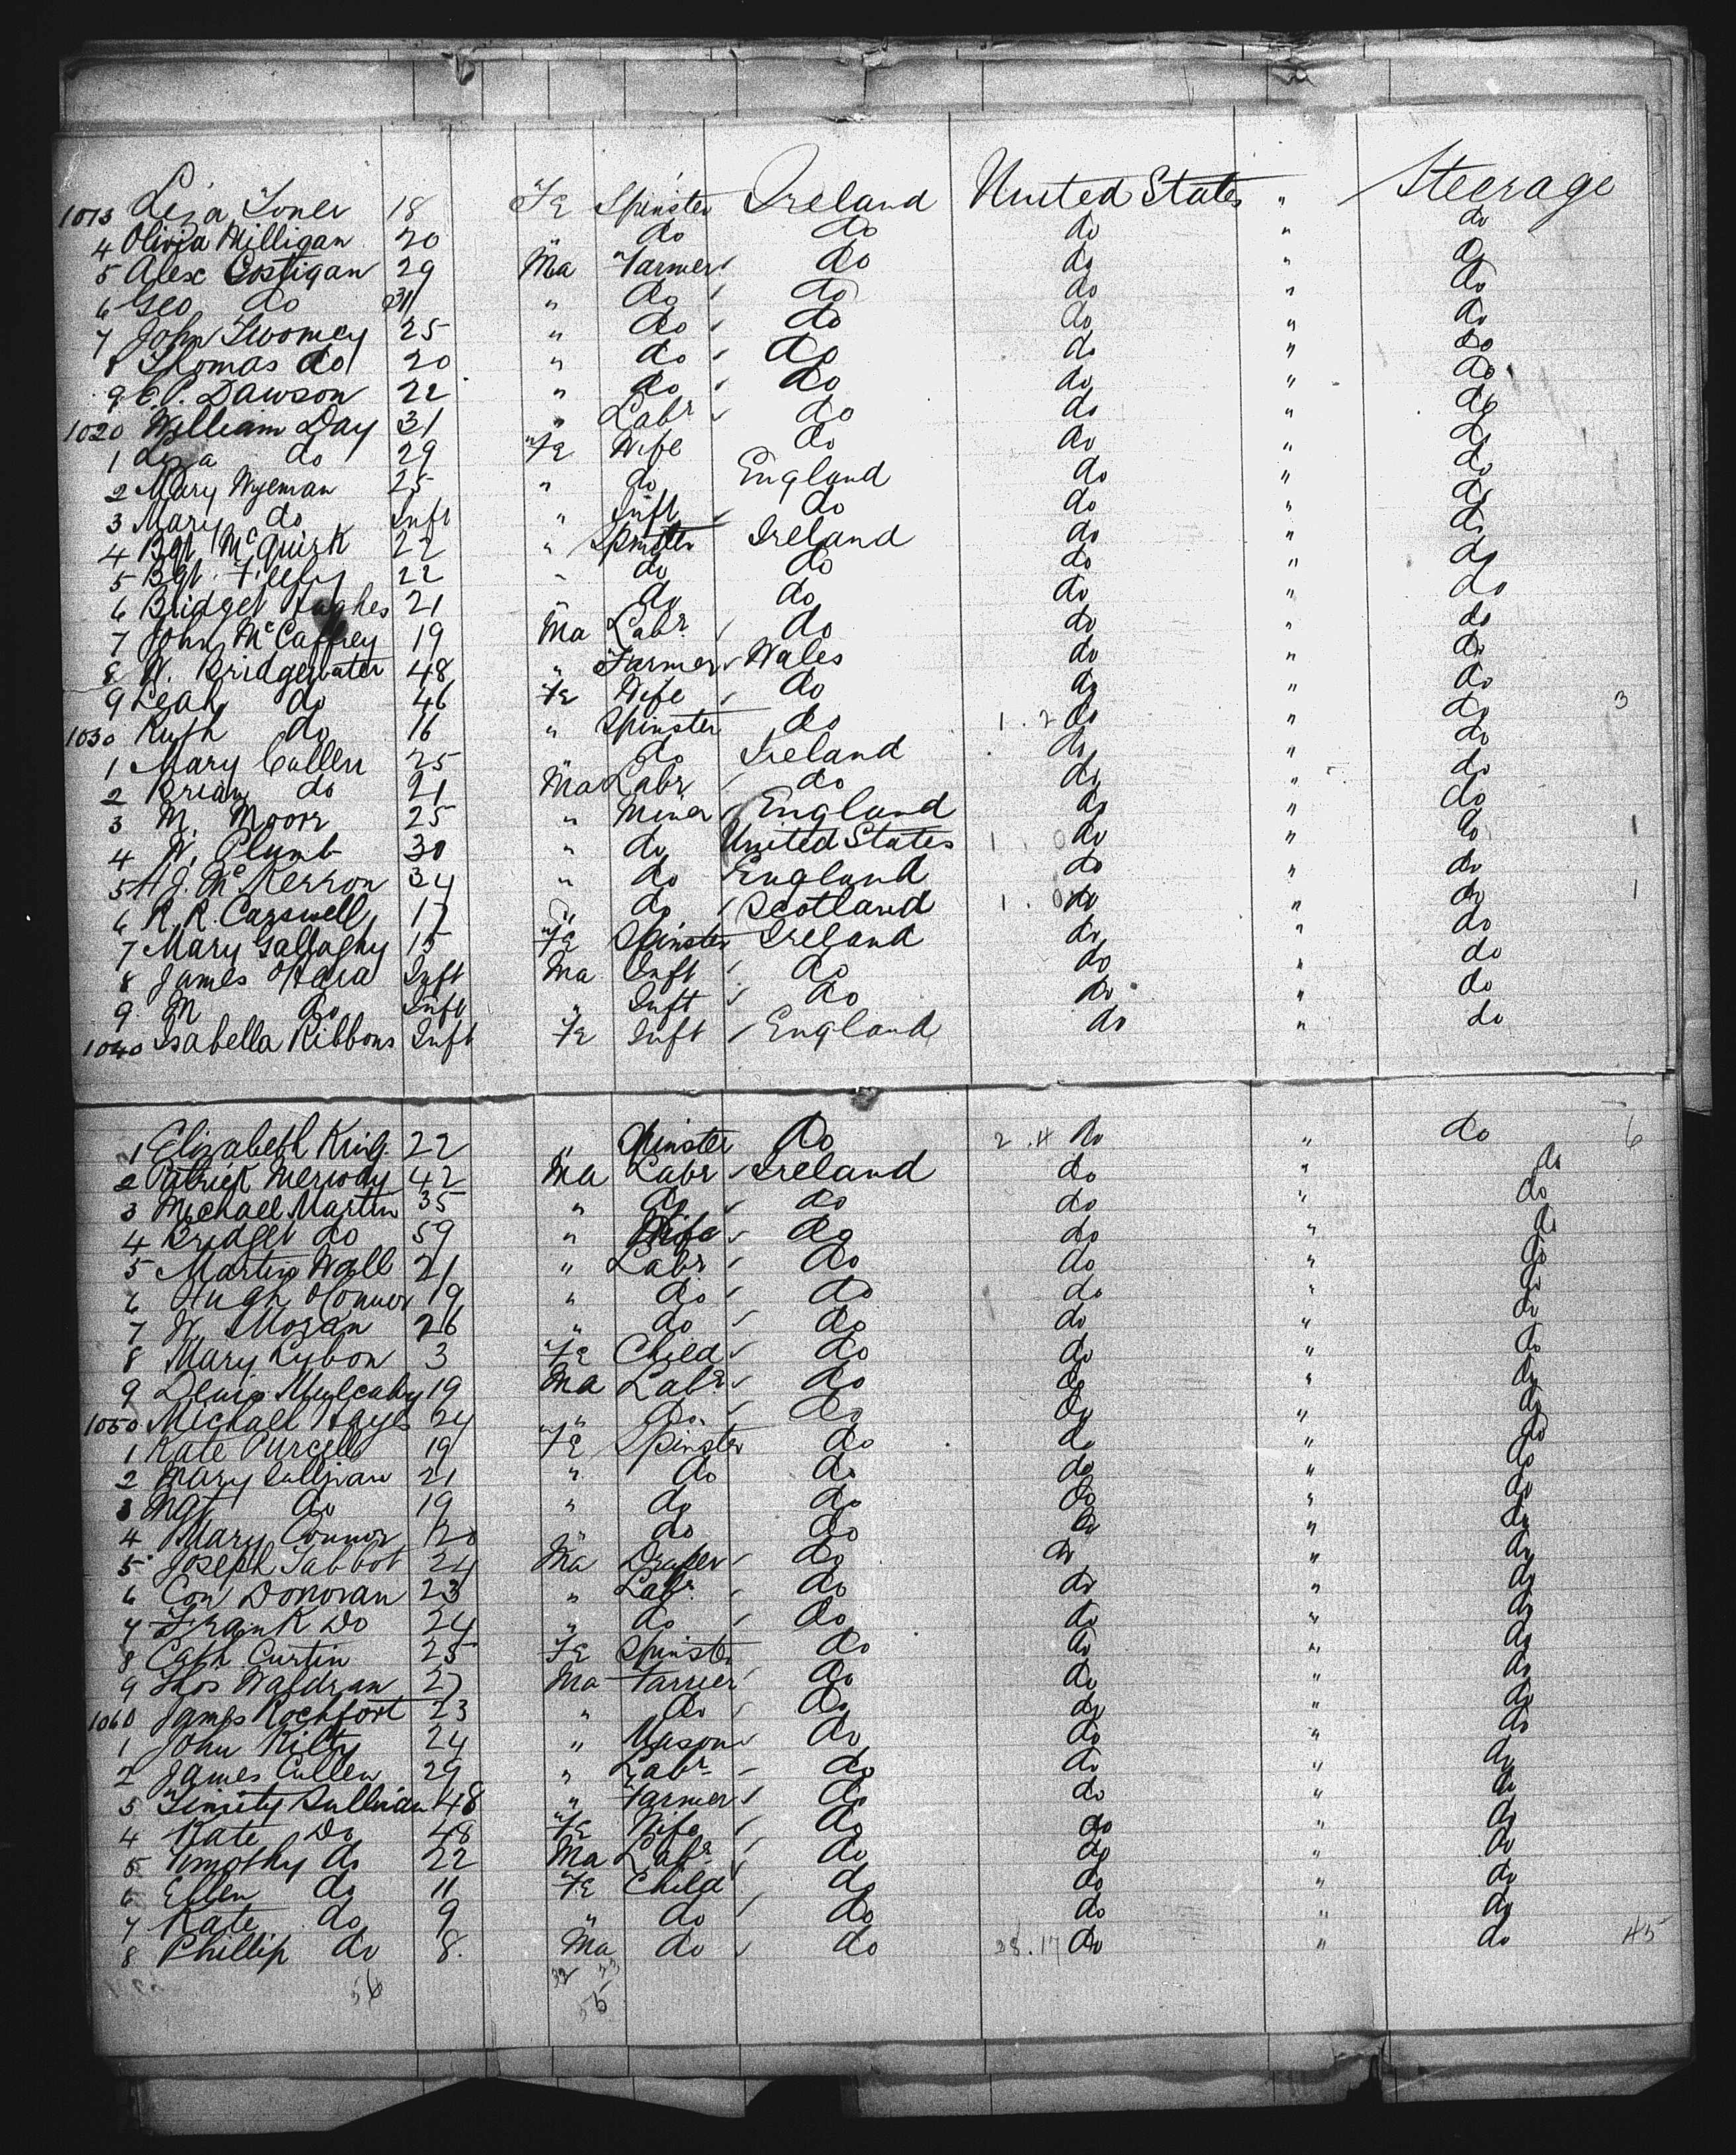 1013 Liza Toner 18 Fe Spinster Ireland United States " Steerage
4 Olivia Milligan 20 " do do do " do
5 Alex Costigan 29 Ma Farmer do do " do
6 Geo do 31 " do do do " do
7 John Twomey 25 " do do do " do
8 Thomas do 20 " do do do " do
9 C.P. Dawson 22 " do do do " do
1020 William Day 31 " Labr do do " do
1 Liza do 29 Fe Wife do do " do
2 Mary Wyeman 25 " do England do " do
3 Mary do Inft " Inft do do " do
4 Bgt McGuirk 22 " Spinster Ireland do " do
5 Bgt. 22 " do do do " do
6 Bridget Hughes 21 " do do do " do
7 John McCaffrey 19 Ma Labr do do " do
8 W. Bridgewater 48 " Farmer Wales do " do
9 Leah do 46 Fe Wife do do " do 3
1030 Ruth do 16 " Spinster do 1.2 do " do
1 Mary Cullen 25 " do Ireland do " do
2 Brian do 21 Ma Labr do do " do
3 M. Moore 25 " Miner England do " do
4 W. Plumb 30 " do United States 1.0 do " do 1
5 H J. McKerron 34 " do England do " do
6 R. R. Carswell 17 " do Scotland 1.0 do " do 1
7 Mary Gallaghy 15 Fe Spinster Ireland do " do
8 James OHara Inft Ma Inft do do " do
9 M do Inft " Inft do do " do
1040 Isabella Ribbons Inft Fe Inft England do " do
1 Elizabeth King 22 " Spinster do 2.4 do " do 6
2 Patrick Merwody 42 Ma Labr Ireland do " do
3 Michael Martin 35 " do do do " do
4 Bridget do 59 " Wife do do " do
5 Martin Wall 21 " Labr do do " do
6 Hugh OConnor 19 " do do do " do
7 W. Moran 26 " do do do " do
8 Mary Lybon 3 Fe Child do do " do
9 Denis Mulcahy 19 Ma Labr do do " do
1050 Michael Hays 24 " do do do " do
1 Kate Purcell 19 Fe Spinster do do " do
2 Mary Sullivan 21 " do do do " do
3 Mgt do 19 " do do do " do
4 Mary Connor 20 " do do do " do
5 Joseph Tabbot 24 Ma Draper do do " do
6 Con Donovan 23 " Labr do do " do
7 Frank Do 24 " do do do " do
8 Cath Curtin 25 Fe Spinster do do " do
9 Thos Waldran 27 Ma Farrier do do " do
1060 James Rochfort 23 " do do do " do
1 John Kilty 24 " Mason do do " do
2 James Cullen 29 " Labr do do " do
3 Timity Sullivan 48 " Farmer do do " do
4 Kate Do 48 Fe Wife do do " do
5 Timothy do 22 Ma Labr do do " do
6 Ellen do 11 Fe Child do do " do
7 Kate do 9 " do do do " do
8 Phillip do 8. Ma do do 28.17 do " do 45
56 33 23
56